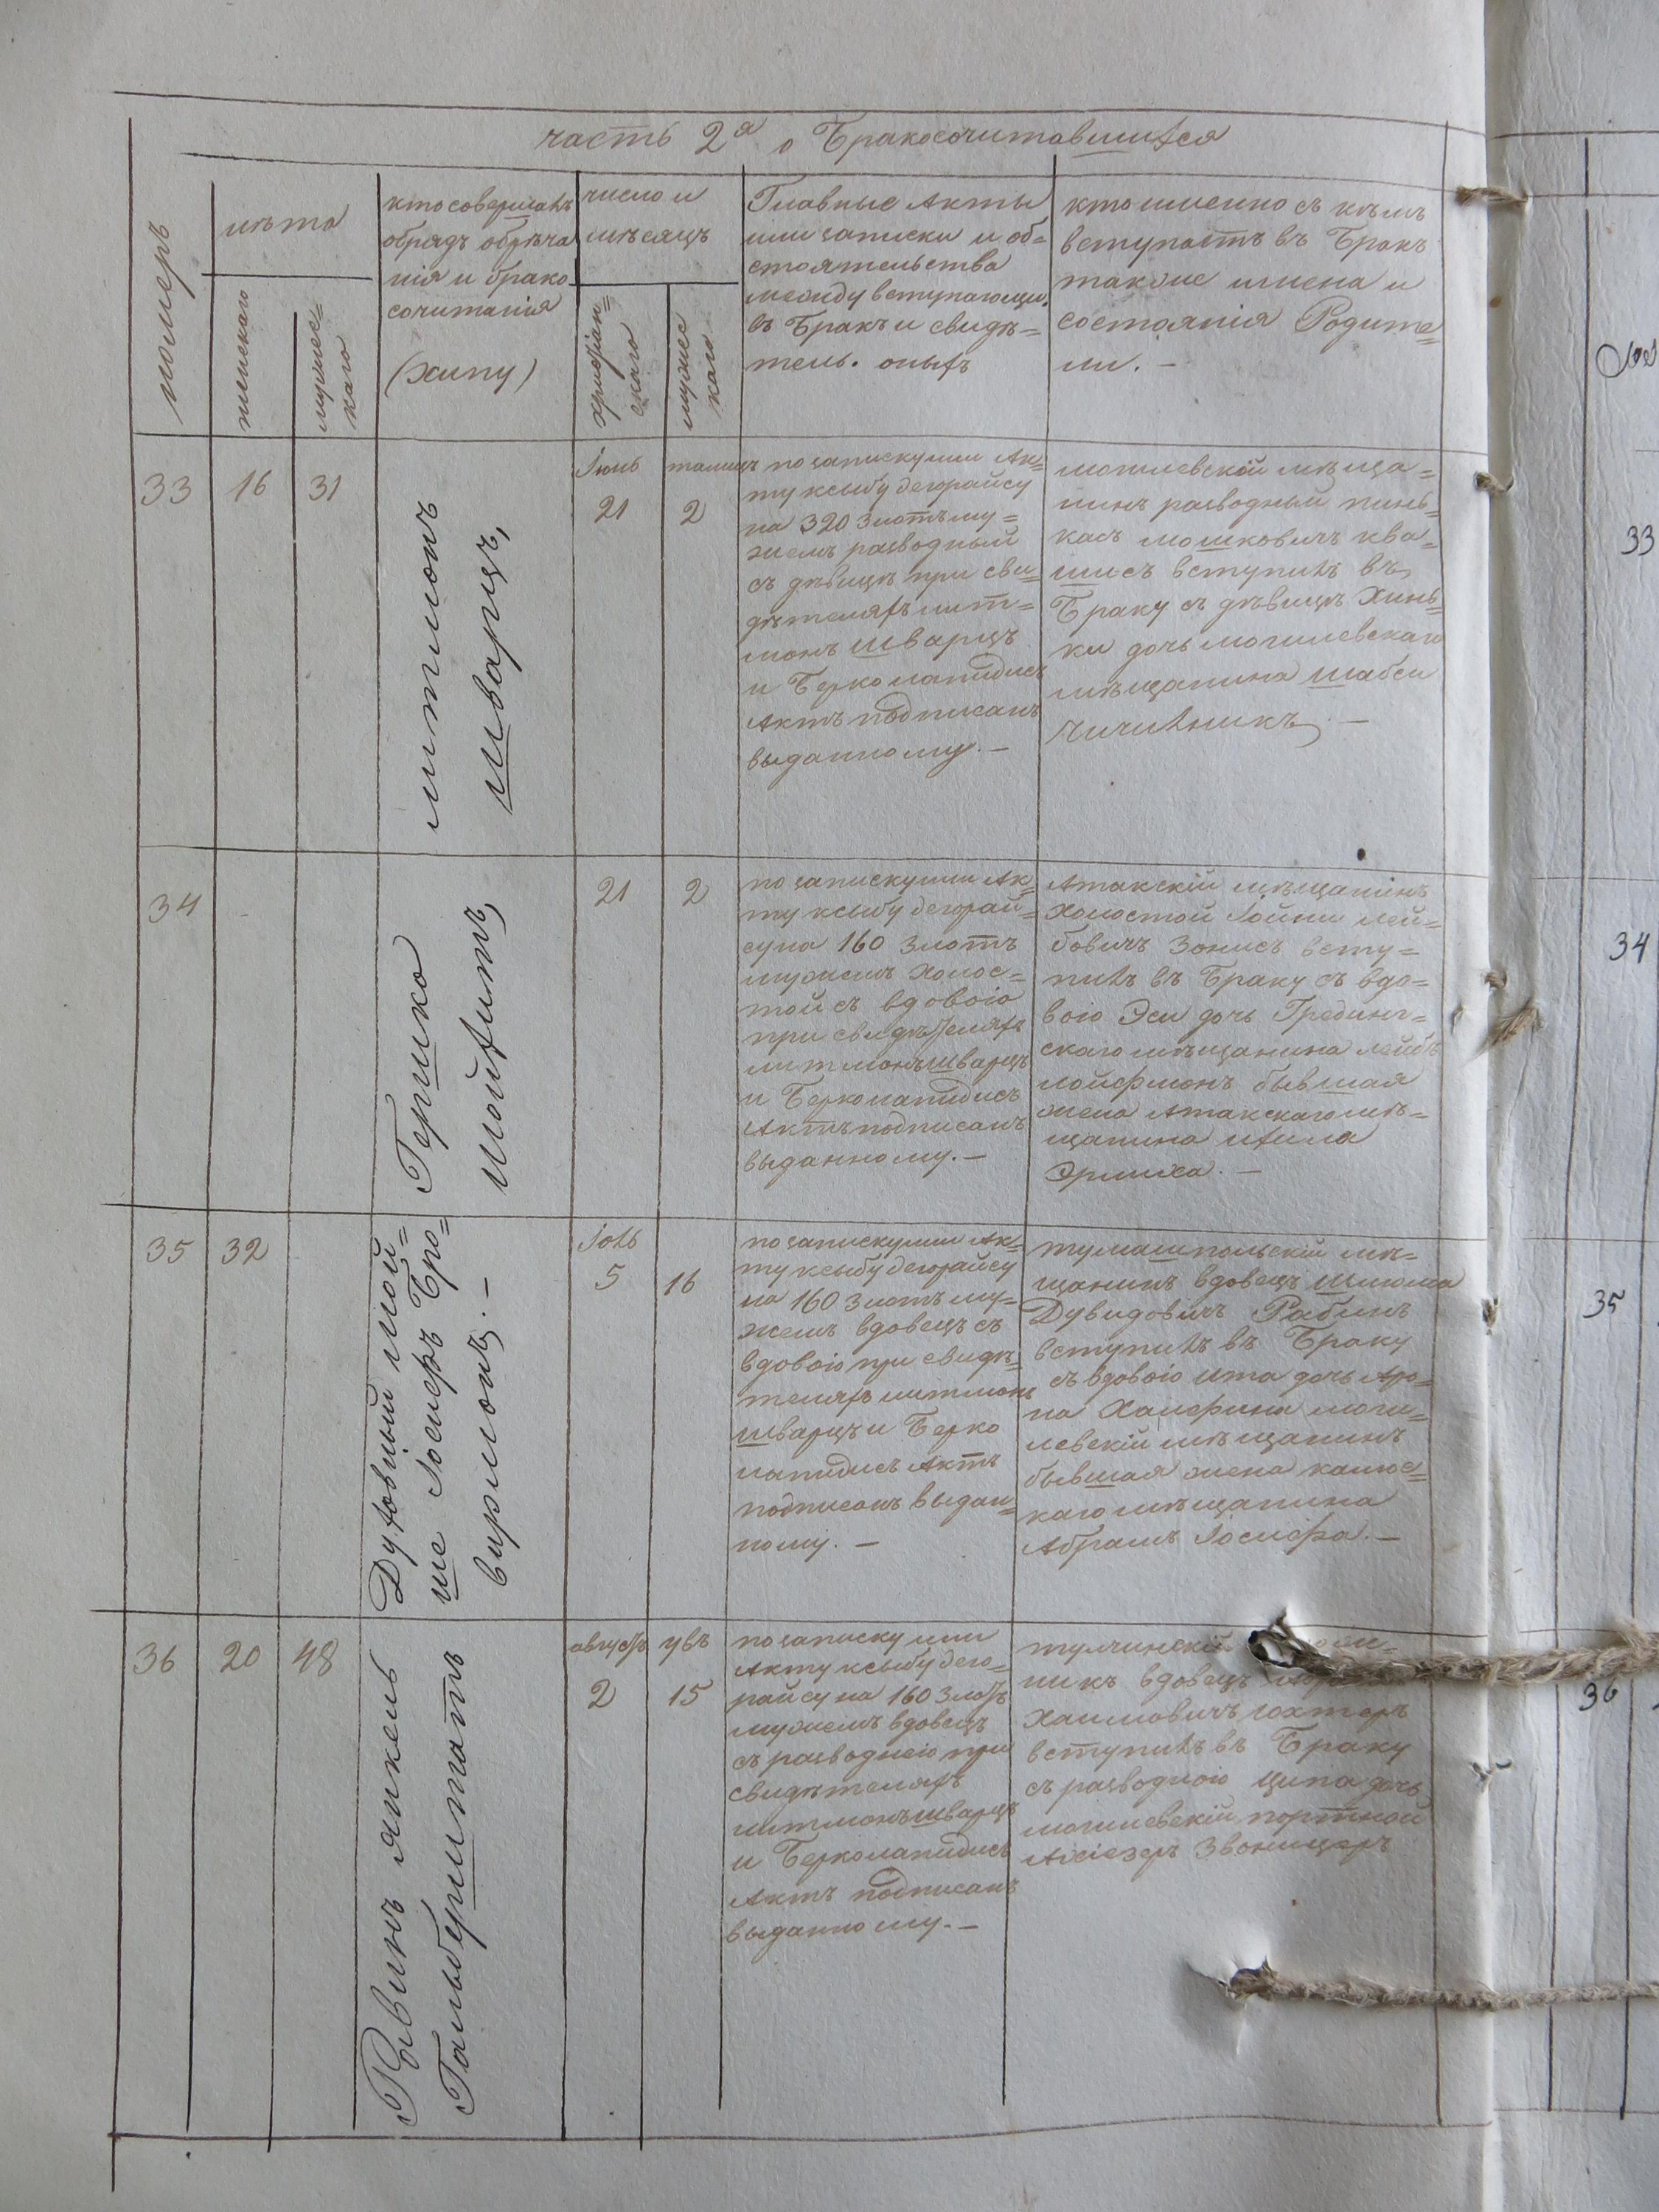 часть 2я о Бракосочитавшихся
номеръ
лѣта
женскаго
мужес=
каго
кто совершалъ
обрядъ обрѣча
нія и брако
сочитанія
(хипу)
число и
мѣсяцъ
христіан=
скаго
мужес
каго
Главные Акты
или записки и об=
стоятельства
между вступающи.
въ Бракъ и свидѣ=
тель. оныхъ
кто именно съ кѣмъ
вступаетъ въ Бракъ
также имена и
состоянія Родите=
ли. —
33
16
31
литмонъ
Шварцъ,
Іюнь
21
тамицъ
2
по запискуили Ак=
ту ксыбу дегорайсу
на 320 Злотъ му=
жемъ разводный
съ дѣвицѣ при сви=
дѣтеляхъ лит=
монъ Шварцъ
и Берко лапидисъ
Актъ подписанъ
выданному. —
могилевскій мѣща=
нинъ разводный пинь=
касъ мошковичъ ква=
шисъ вступилъ въ
Браку съ дѣвицѣ Хинь=
ки дочь могилевскаго
мѣщанина шабси
Чичилникъ. —
34
Гершко
Мойхитъ,
21
2
по запискуили Ак=
ту ксыбу дегорай=
су на 160 Злотъ
мужемъ холос=
той съ вдовоіо
при свидѣтеляхъ
литмонъ шварцъ
и Берко лапидисъ
Актъ подписанъ
выданному. —
Атакскій мѣщанінъ
Холостой Іойни лей=
бовичъ Зонисъ всту=
пилъ въ Браку съ вдо=
воіо Эси дочь Гредингъ=
скаго мѣщанина лейбъ
лойфмонъ бывшая
жена Атакскаго мѣ=
щанина ихила
Эрлиха. —
35
32
Духовный мой=
ше Іосиеръ Бро=
вирмонъ. —
Іолъ
5
16
по запискуили Ак=
ту ксыбу дегорайсу
на 160 Злотъ му=
жемъ вдовецъ съ
вдовоіо при свидѣ=
теляхъ литмонъ
шварцъ и Берко
лапидисъ Актъ
подписанъ выдан=
ному. —
тумашпольскій мѣ=
щанинъ вдовецъ Шлюма
Дувидовичъ Рабинъ
вступилъ въ Браку
съ вдовоіо ита дочь Аро=
на Халефина моги=
левскій мѣщанинъ
бывшая жена калюс=
каго мѣщанина
Абрамъ Іосифа. —
36
20
48
Рывинъ янкель
Гальбурштатъ
августъ
2
увъ
15
по записку или
Акту ксыбу дего=
райсу на 160 Злотъ
мужемъ вдовецъ
съ разводнеіо при
свидѣтеляхъ
литмонъ шварцъ
и Берко лапидисъ
Актъ подписанъ
выданному. —
тулчинскій
никъ вдовецъ
Хаимовичъ Іохтеръ
вступилъ въ Браку
съ разводноіо Ципа дочь
могилевскій портной
Аліезеръ Звоницеръ
33
34
35
36